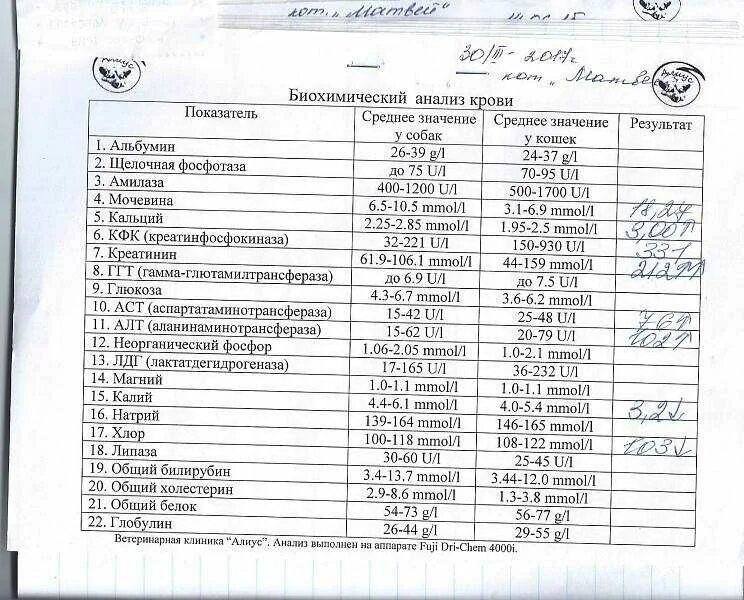 кот. „Матвей"
30/III - 2017г
кот „Матвей
Биохимический анализ крови
Показатель Среднее значение у собак Среднее значение у кошек Результат
1. Альбумин 26-39 g/l 24-37 g/l
2. Щелочная фосфотаза до 75 U/l 70-95 U/l
3. Амилаза 400-1200 U/l 500-1700 U/l
4. Мочевина 6.5-10.5 mmol/l 3.1-6.9 mmol/l 18,2↑
5. Кальций 2.25-2.85 mmol/l 1.95-2.5 mmol/l 3,00↑
6. КФК (креатинфосфокиназа) 32-221 U/l 150-930 U/l 331
7. Креатинин 61.9-106.1 mmol/l 44-159 mmol/l 212↑↑
8. ГГТ (гамма-глютамилтрансфераза) до 6.9 U/l до 7.5 U/l
9. Глюкоза 4.3-6.7 mmol/l 3.6-6.2 mmol/l
10. АСТ (аспартатаминотрансфераза) 15-42 U/l 25-48 U/l 76↑
11. АЛТ (аланинаминотрансфераза) 15-62 U/l 20-79 U/l 102↑
12. Неорганический фосфор 1.06-2.05 mmol/l 1.0-2.1 mmol/l
13. ЛДГ (лактатдегидрогеназа) 17-165 U/l 36-232 U/l
14. Магний 1.0-1.1 mmol/l 1.0-1.1 mmol/l
15. Калий 4.4-6.1 mmol/l 4.0-5.4 mmol/l 3,2↓
16. Натрий 139-164 mmol/l 146-165 mmol/l
17. Хлор 100-118 mmol/l 108-122 mmol/l 103↓
18. Липаза 30-60 U/l 25-45 U/l
19. Общий билирубин 3.4-13.7 mmol/l 3.44-12.0 mmol/l
20. Общий холестерин 2.9-8.6 mmol/l 1.3-3.8 mmol/l
21. Общий белок 54-73 g/l 56-77 g/l
22. Глобулин 26-44 g/l 29-55 g/l
Ветеринарная клиника "Алиус". Анализ выполнен на аппарате Fuji Dri-Chem 4000i.